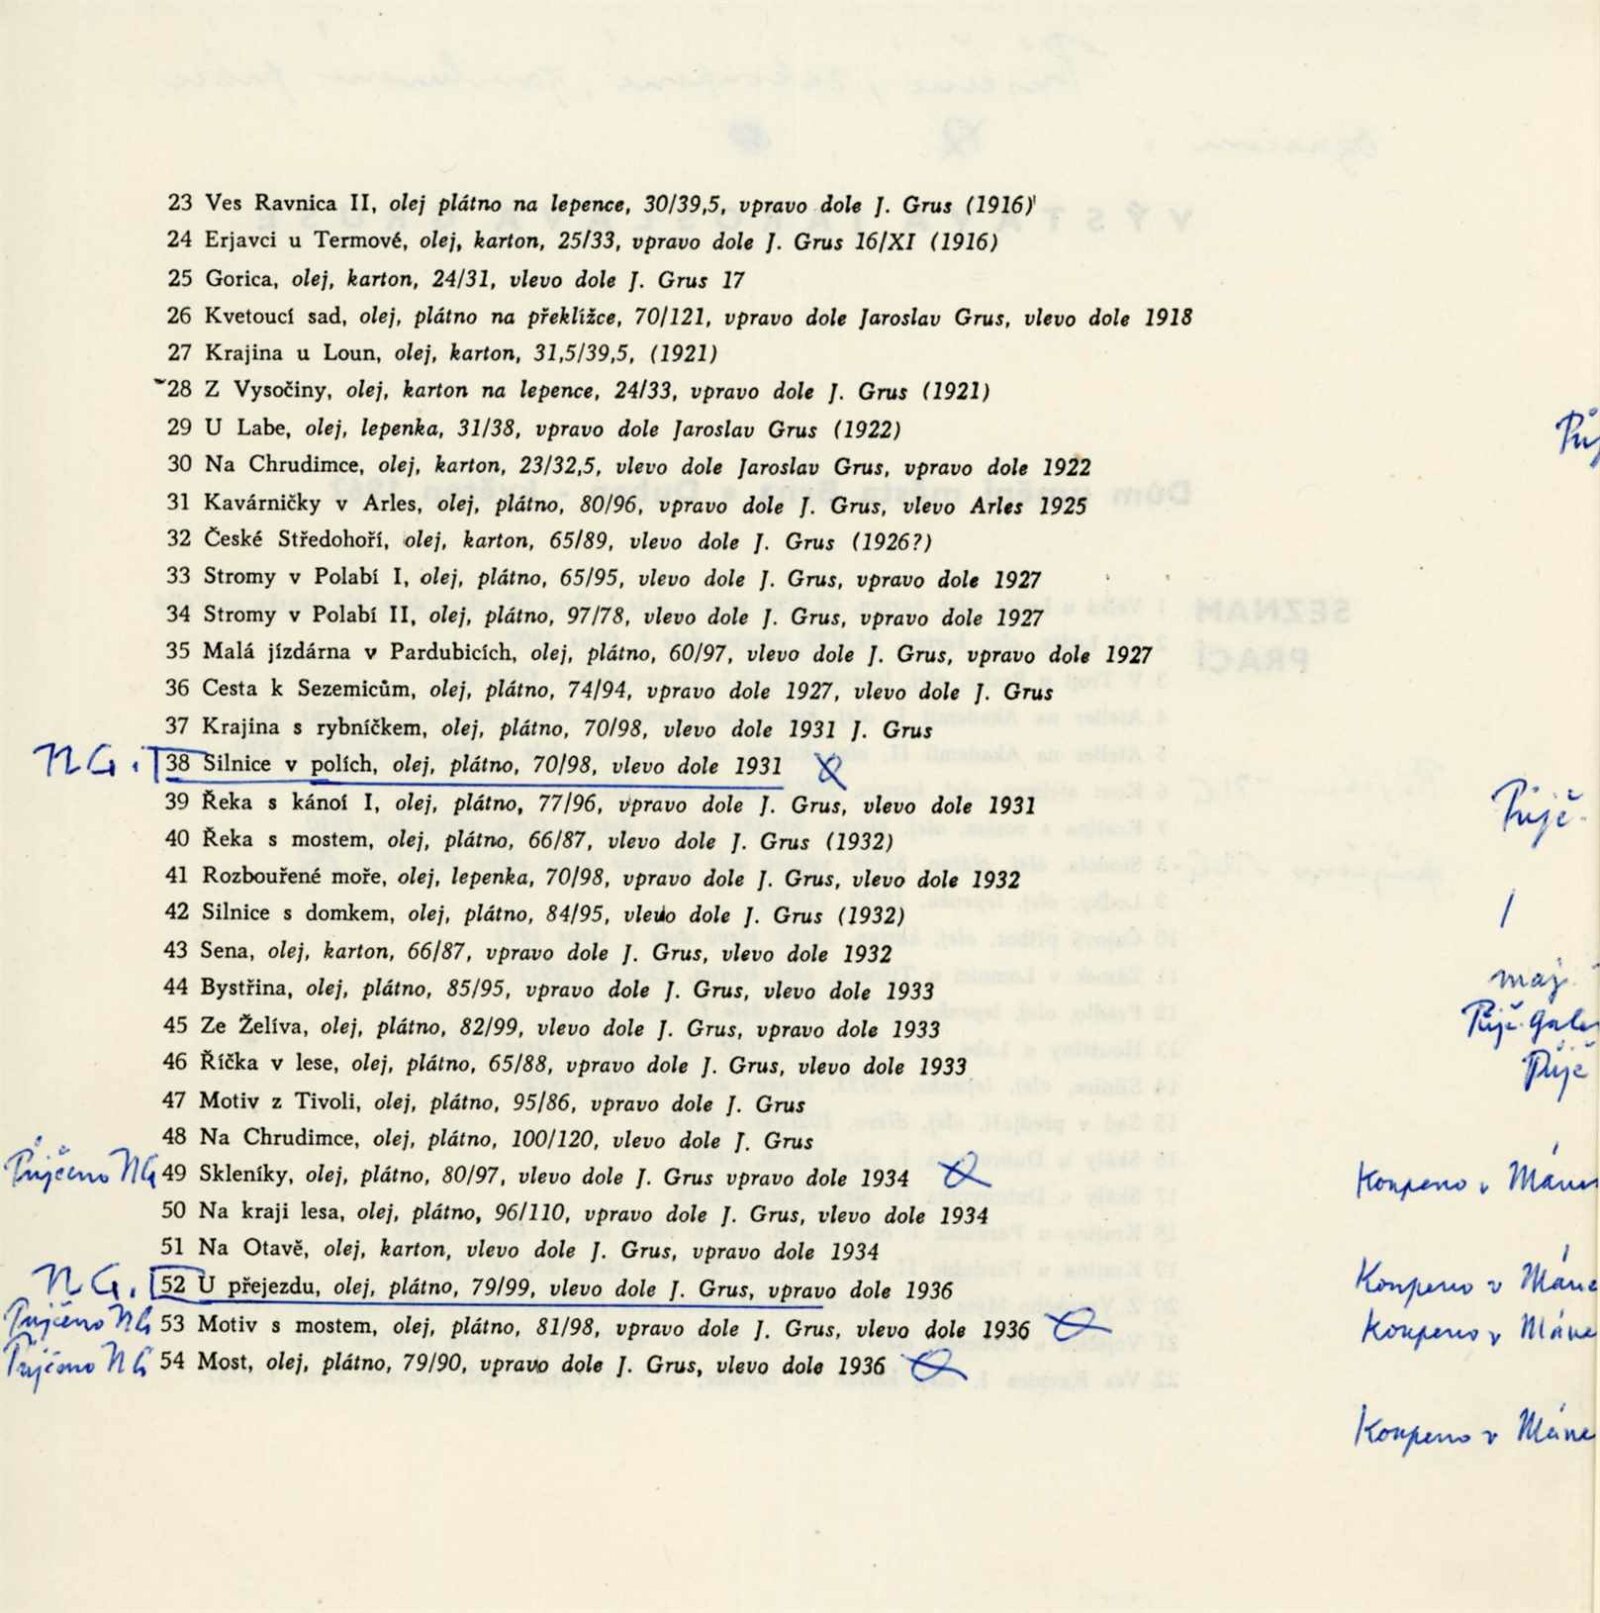 23 Ves Ravnica II, olej plátno na lepence, 30/39,5, vpravo dole J. Grus (1916)
24 Erjavci u Termové, olej, karton, 25/33, vpravo dole J. Grus 16/XI (1916)
25 Gorica, olej, karton, 24/31, vlevo dole J. Grus 17
26 Kvetoucí sad, olej, plátno na překližce, 70/121, vpravo dole Jaroslav Grus, vlevo dole 1918
27 Krajina u Loun, olej, karton, 31,5/39,5, (1921)
28 Z Vysočiny, olej, karton na lepence, 24/33, vpravo dole J. Grus (1921)
29 U Labe, olej, lepenka, 31/38, vpravo dole Jaroslav Grus (1922)
30 Na Chrudimce, olej, karton, 23/32,5, vlevo dole Jaroslav Grus, vpravo dole 1922
31 Kavárničky v Arles, olej, plátno, 80/96, vpravo dole J. Grus, vlevo Arles 1925
32 České Středohoří, olej, karton, 65/89, vlevo dole J. Grus (1926?)
33 Stromy v Polabí I, olej, plátno, 65/95, vlevo dole J. Grus, vpravo dole 1927
34 Stromy v Polabí II, olej, plátno, 97/78, vlevo dole J. Grus, vpravo dole 1927
35 Malá jízdárna v Pardubicích, olej, plátno, 60/97, vlevo dole J. Grus, vpravo dole 1927
36 Cesta k Sezemicům, olej, plátno, 74/94, vpravo dole 1927, vlevo dole J. Grus
37 Krajina s rybníčkem, olej, plátno, 70/98, vlevo dole 1931 J. Grus
NG. 38 Silnice v polích, olej, plátno, 70/98, vlevo dole 1931
39 Řeka s kánoí I, olej, plátno, 77/96, vpravo dole J. Grus, vlevo dole 1931 Půjč.
40 Řeka s mostem, olej, plátno, 66/87, vlevo dole J. Grus (1932)
41 Rozbouřené moře, olej, lepenka, 70/98, vpravo dole J. Grus, vlevo dole 1932
42 Silnice s domkem, olej, plátno, 84/95, vlevo dole J. Grus (1932)
43 Sena, olej, karton, 66/87, vpravo dole J. Grus, vlevo dole 1932
44 Bystřina, olej, plátno, 85/95, vpravo dole J. Grus, vlevo dole 1933 maj.
45 Ze Želiva, olej, plátno, 82/99, vlevo dole J. Grus, vpravo dole 1933 Půjč. Gale
46 Říčka v lese, olej, plátno, 65/88, vpravo dole J. Grus, vlevo dole 1933 Půjč
47 Motiv z Tivoli, olej, plátno, 95/86, vpravo dole J. Grus
48 Na Chrudimce, olej, plátno, 100/120, vlevo dole J. Grus
Půjčeno NG 49 Skleníky, olej, plátno, 80/97, vlevo dole J. Grus vpravo dole 1934 Koupeno v Máne
50 Na kraji lesa, olej, plátno, 96/110, vpravo dole J. Grus, vlevo dole 1934
51 Na Otavě, olej, karton, vlevo dole J. Grus, vpravo dole 1934
NG. 52 U přejezdu, olej, plátno, 79/99, vlevo dole J. Grus, vpravo dole 1936 Koupeno v Máne
Půjčeno NG 53 Motiv s mostem, olej, plátno, 81/98, vpravo dole J. Grus, vlevo dole 1936 Koupeno v Máne
Půjčeno NG 54 Most, olej, plátno, 79/90, vpravo dole J. Grus, vlevo dole 1936
Koupeno v Máne